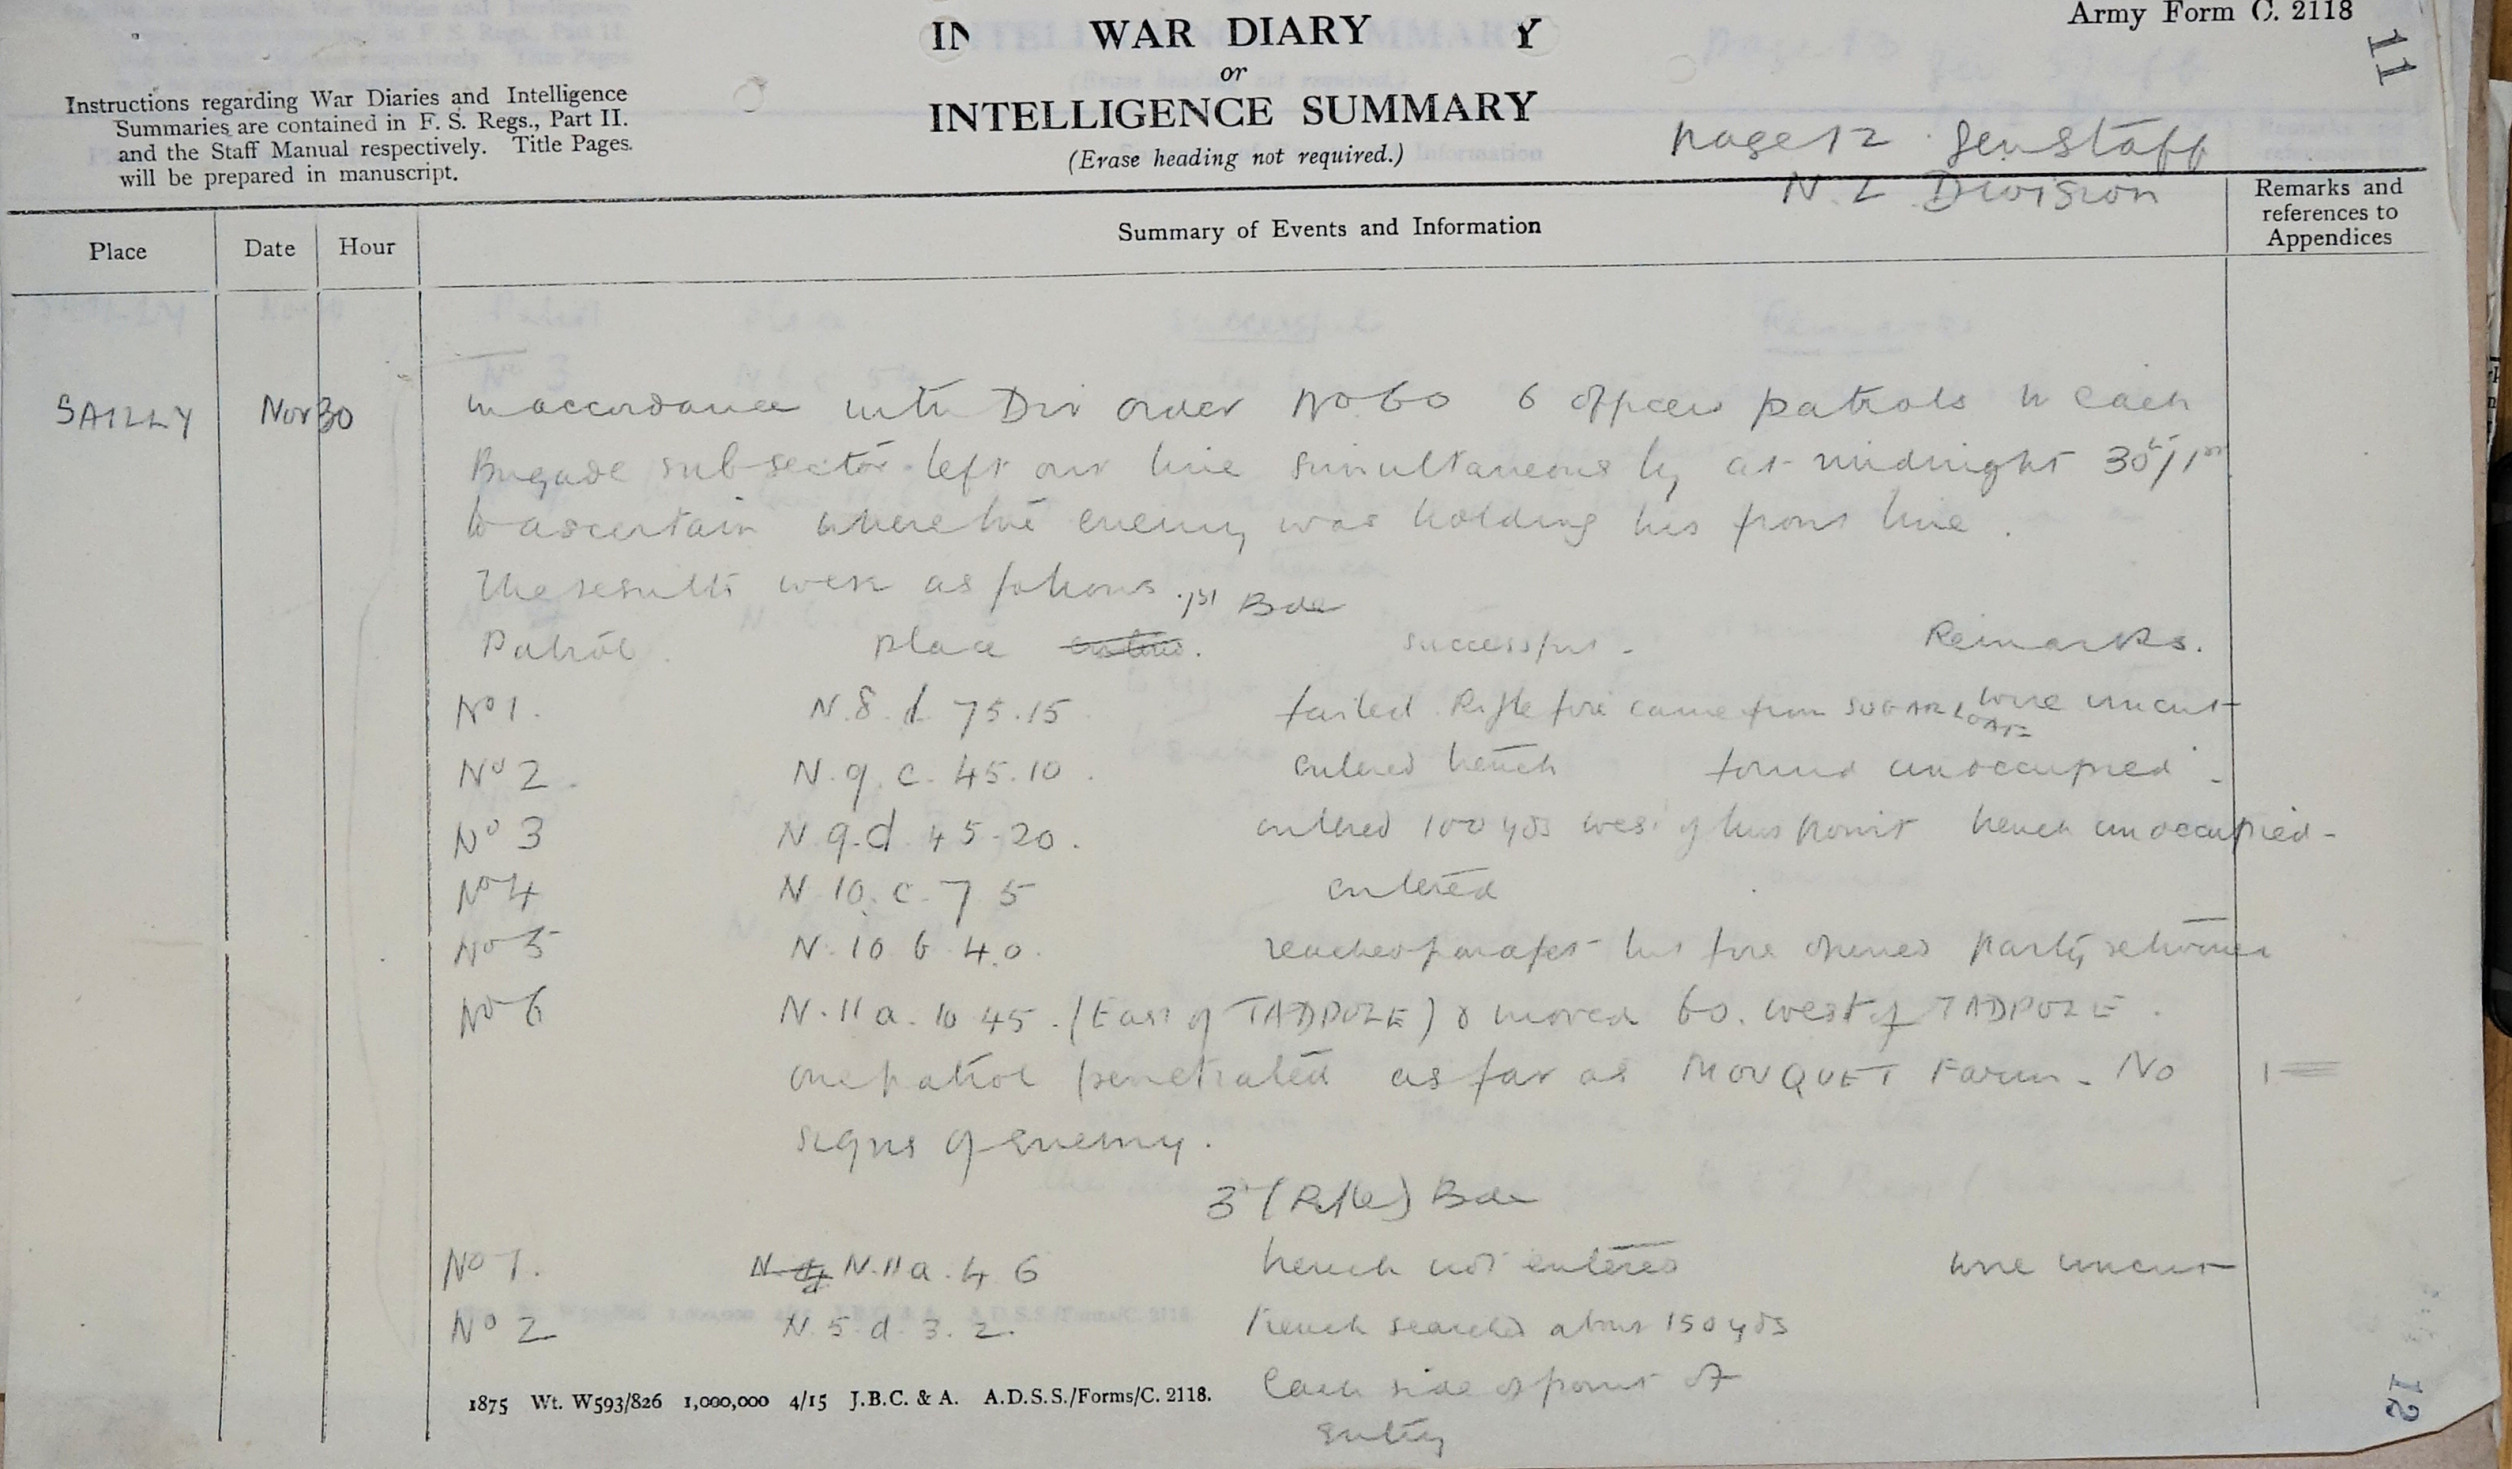 WAR DIARY
or
INTELLIGENCE SUMMARY
(Erase heading not required.)
Army Form C. 2118
11
Instructions regarding War Diaries and Intelligence
Summaries are contained in F. S. Regs., Part II.
and the Staff Manual respectively. Title Pages
will be prepared in manuscript.
page 12 Gen Staff
N.Z Division
Place Date Hour Summary of Events and Information Remarks and references to Appendices
SAILLY Nov 30 In accordance with Div order No 60 6 officers patrols in each
Brigade subsector left our line simultaneously at midnight 30th/1st
to ascertain where the enemy was holding his front line.
The results were as follows. 1st Bde
Patrol. Place successful. Remarks.
No 1. N.8.d 75.15 failed Rifle fire came from SUGAR LOAF wire uncut
No 2. N.9.c.45.10. entered trench found unoccupied.
No 3 N.9.d.45-20. entered 100 yds west of this point trench unoccupied-
No 4 N.10.c.75 entered
No 5 N.10 b 4.0. reached parapet but fire opened party returned
No 6 N.11a.10 45. (East of TADPOLE) & moved 60. west of TADPOLE.
one patrol penetrated as far as MOUQUET Farm. No
signs of enemy.
3rd (Rifle) Bde
No 1. N.11a.4 6 trench not entered wire uncut
No 2 N.5.d.3.2. trench searched about 150 yds
each side of point of
entry
1875 Wt. W593/826 1,000,000 4/15 J.B.C. & A. A.D.S.S./Forms/C. 2118.
12